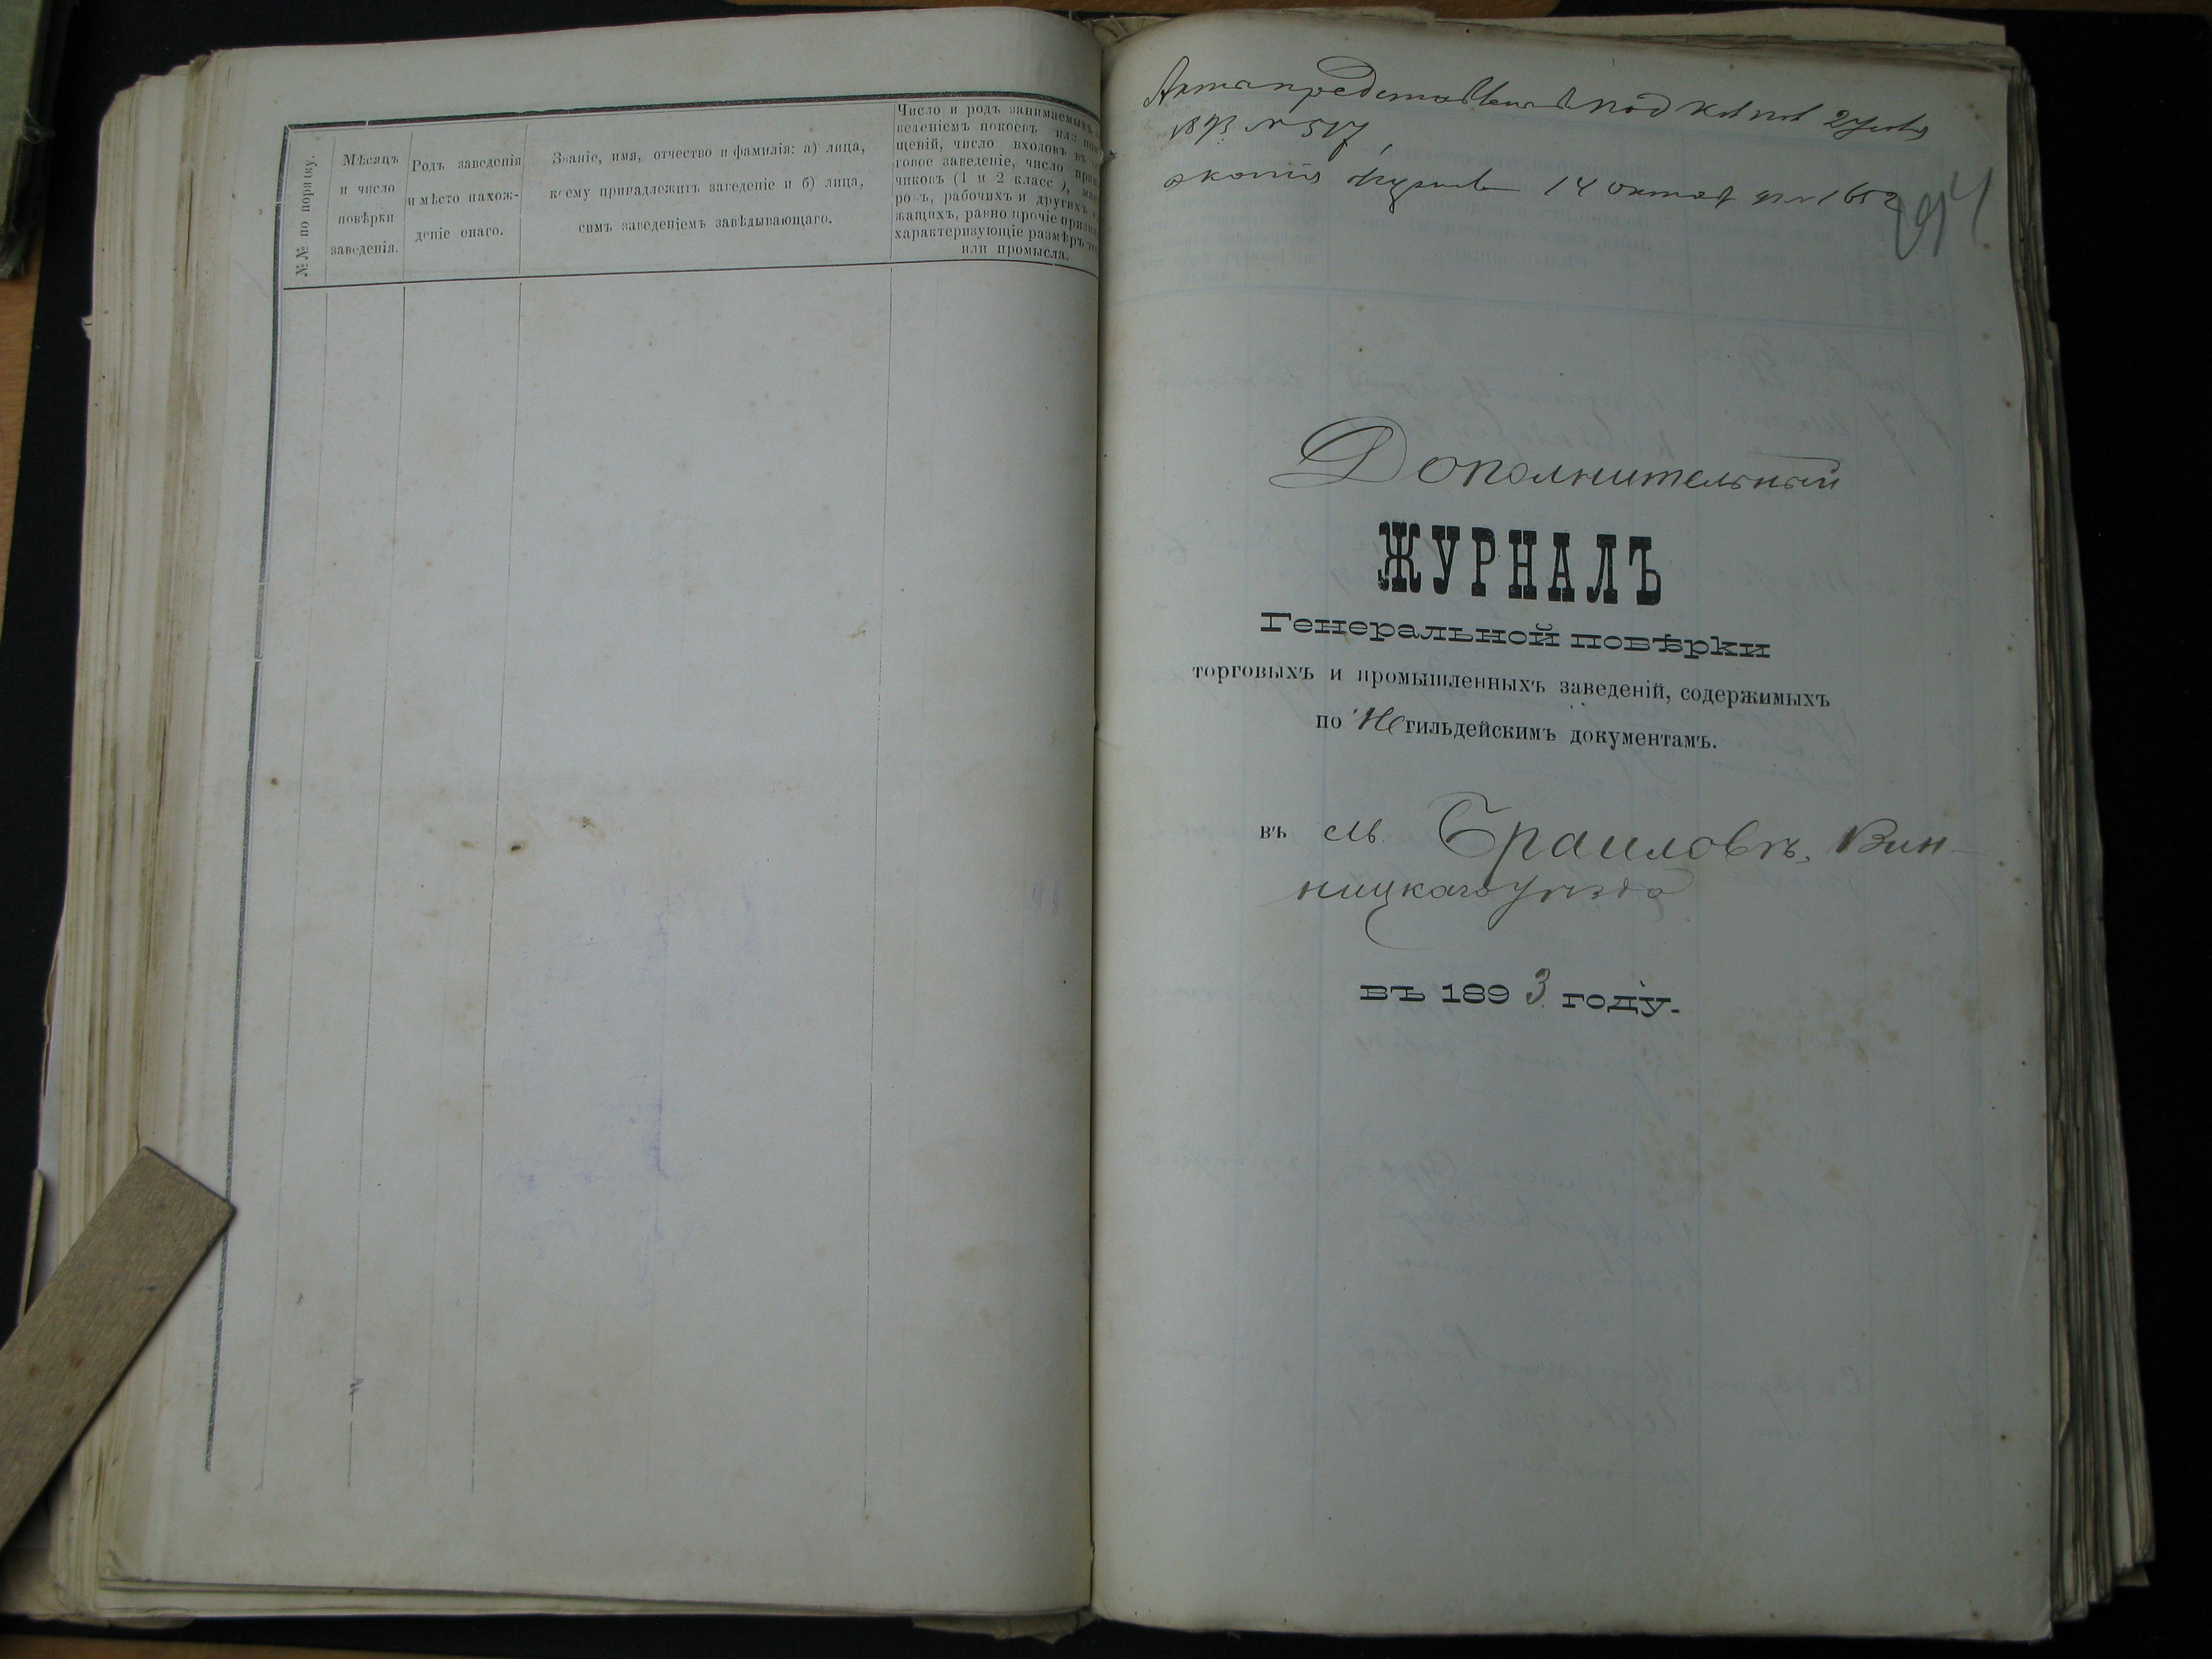 №№ по порядку.
Мѣсяцъ
и число
повѣрки
заведенія.
Родъ заведенія
и мѣсто нахож-
деніе онаго.
Званіе, имя, отчество и фамилія: а) лица,
коему принадлежитъ заведеніе и б) лица,
симъ заведеніемъ завѣдывающаго.
Число и родъ занимаемыхъ
веденіемъ покоевъ или
щеній, число входовъ въ
говое заведеніе, число
чиковъ (1 и 2 класс),
рабочихъ и другихъ
жащихъ, равно прочіе
характеризующіе размѣръ
или промысла.
1893 № 517,
14 октяб
294
Дополнительный
ЖУРНАЛЪ
Генеральной повѣрки
торговыхъ и промышленныхъ заведеній, содержимыхъ
по Негильдейскимъ документамъ.
въ м. Браиловѣ, Вин-
ницкаго уѣзда
въ 1893 году.